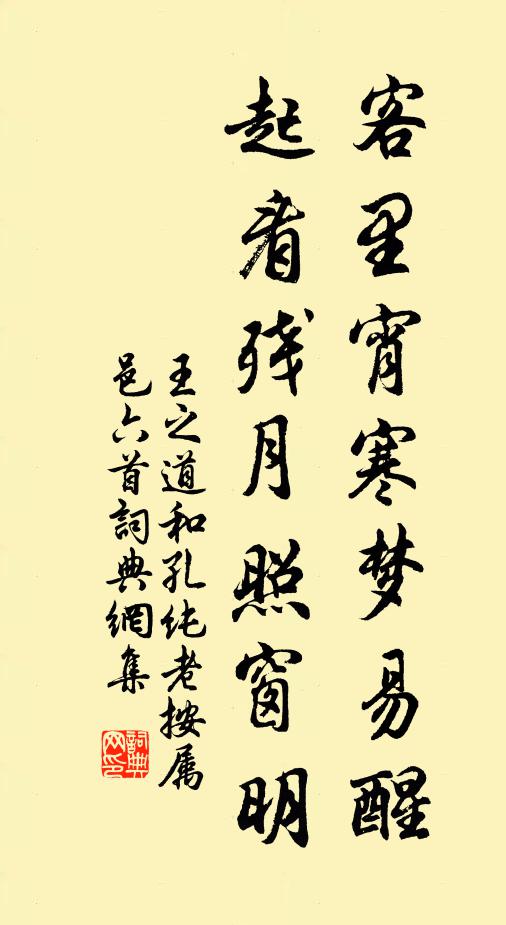 客里宵寒梦易醒
起看残月照窗明
王之道和孔纯老按属
邑六首詞典網集
詞典
网印